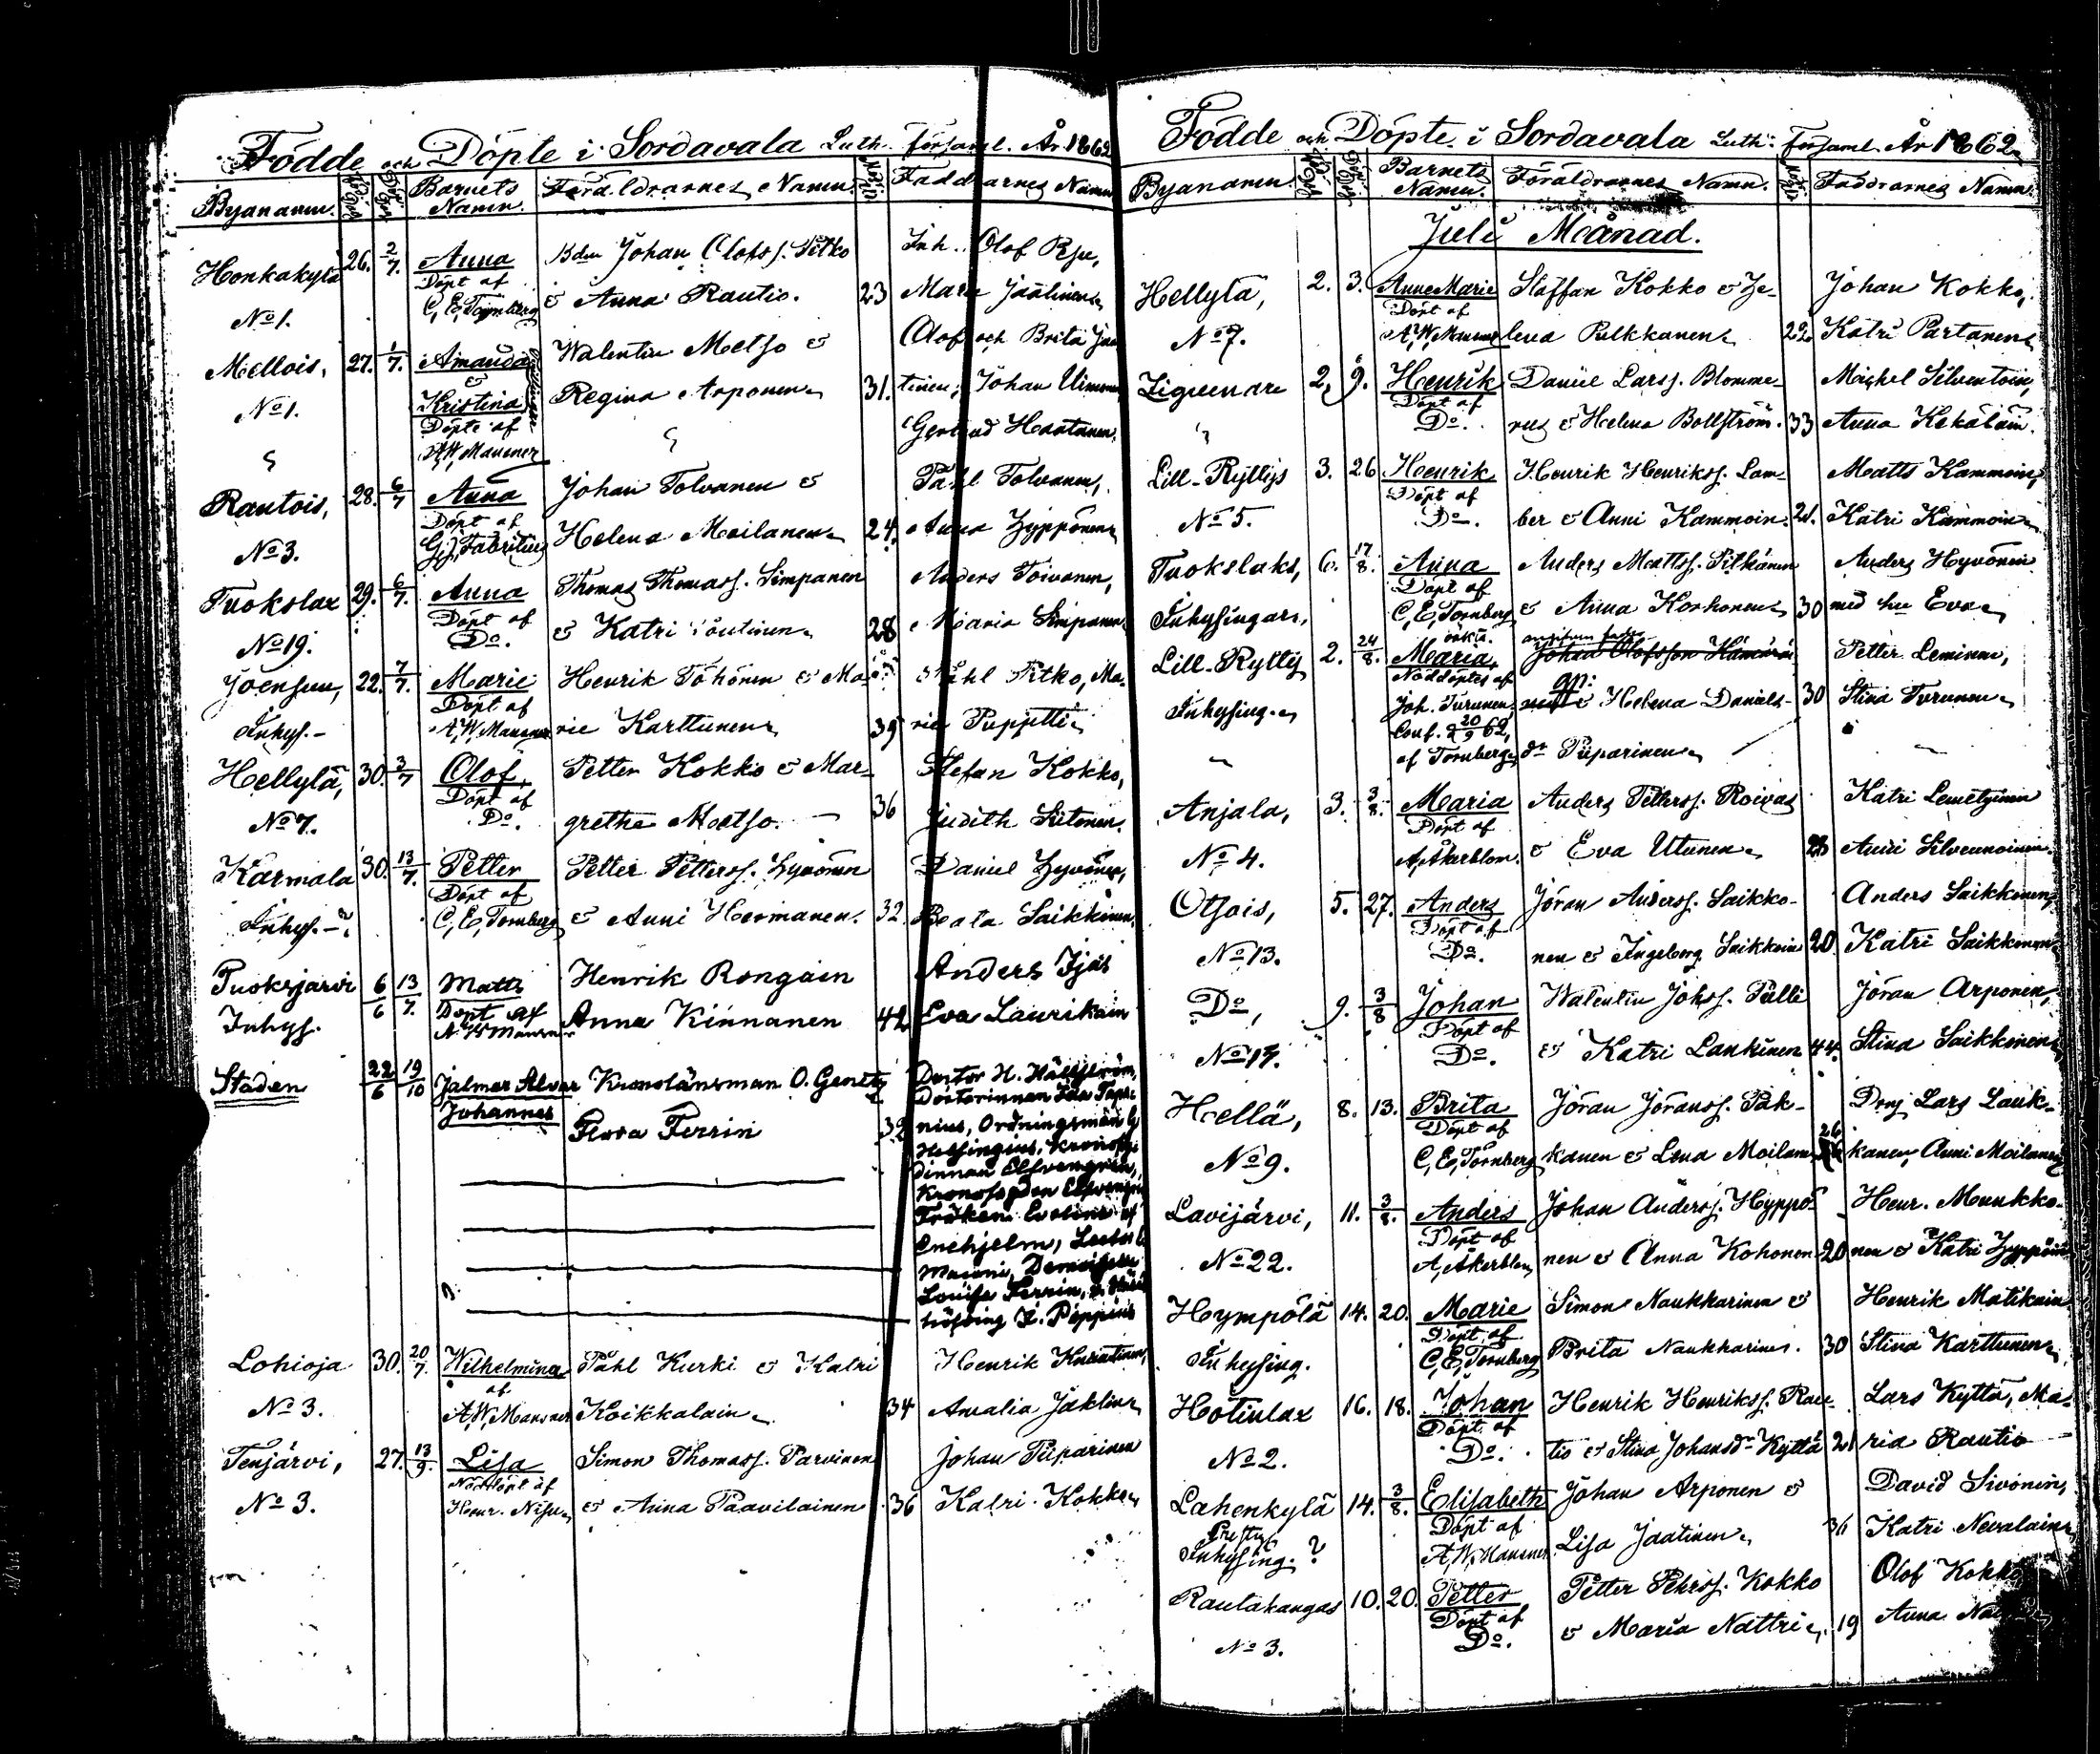 Födde och Döpte i Sordavala Luth. Församl. År 1862
Byanamn. Barnets Namn. Föräldrarnes Namn. Faddrarnes Namn
Honkakylä 26. 2/7. Anna Bdn Johan Olofss. Pitko Inh. Olof
Döpt af
No 1. C, E, Törnberg & Anna Rautio. 23 Marie Jaatinen
Mellois, 27. 1/7. Amanda Walentin Metso & Olof och Brita Jaa
&
No 1. Kristina Regina Arponen 31. tinen; Johan
Döpte af
A, W, Mansner Gertrud Haatanen.
Rautois, 28. 6/7 Anna Johan Tolvanen & Påhl Tolvanen,
Döpt af
No 3. G, J, Fabritius Helena Moilanen 24. Anna Hyppönen
Tuokslax 29. 6/7. Anna Thomas Thomass. Simpanen Anders Toivonen,
Döpt af
No 19. Do. & Katri 28 Maria Simpanen
Joensuu, 22. 7/7. Marie Henrik Töhönen & Ma- Påhl Pitko, Ma-
Döpt af
Inhys.- A, W, Mansner rie Karttunen 39 ria
Hellylä, 30. 3/7 Olof, Petter Kokko & Mar- Stefan Kokko,
Döpt af
No 7. Do. grethe Metso. 36 Judith
Kärmälä 30. 13/7. Petter Petter Petterss. Hyvönen Daniel Hyvönen,
Döpt af
Inhys. C, E, Törnberg & Anni Hermanen. 32. Beata Saikkinen
6/6 13/7. Matts Henrik Rongain Anders Ijäs
Döpt af
Inhys. A. W. Mansner Anna Kinnanen 42 Eva Laurikain
Staden 22/6 19/10 Jalmar Alvar Kronolänsman O. Genetz Doctor H. Hällström,
Johannes Doctorinnan
Flora Ferrin 32 nius, Ordningsman G
Helsingius, Kronofog
dinnan Elfvengren,
Kronofogden Elfvengren
Fröken af
Enehjelm,
Demoiselle
Louise Ferrin,
höfding
Lohioja 30. 20/7. Wilhelmina Påhl Kurki & Katri Henrik
af
No 3. A, W, Mansner Koikkalain 34 Amalia
Tenjärvi, 27. 13/9. Lisa Simon Thomass. Parvinen Johan Piiparinen
Nöddöpt af
No 3. Henr. & Anna Paavilainen 36 Katri Kokko
Födde och Döpte i Sordavala Luth. Församl. År 1862
Byanamn. Barnets Namn. Föräldrarnes Namn. Faddrarnes Namn.
Juli Månad.
Hellylä, 2. 3. Anna Marie Staffan Kokko & He- Johan Kokko,
Döpt af
No 7. A, W, Mansner lena Pulkkanen 22. Katri Partanen
2, 9. Henrik Daniel Larss. Blomme- Michel Silventoin,
Döpt af
Do. rus & Helena Bollström. 33 Anna Kekäläin.
Lill-Ryttys 3. 26 Henrik Henrik Henrikss. Lam- Matts Kammoin,
Döpt af
No 5. Do. ber & Anni Kammoin. 21. Katri Kammoin
Tuokslaks, 6. 17/8. Anna Anders Mattss. Pitkänen Anders Hyvönen
Döpt af
Inhysingar, C, E, Törnberg & Anna Korhonen 30 med hu Eva
oäkta.
Lill-Rytty 2. 24/8. Maria, Johan Olofsson Hämäräin Petter Leminen,
Nöddöptes af
Inhysing. Joh. Turunen & Helena Daniels- 30 Stina Turunen
Conf. d 20/9 62,
af Törnberg dr Piiparinen
Anjala, 3. 3/8. Maria Anders Petterss. Roivas Katri Lemetyinen
Döpt af
No 4. A, Åkerblom. & Eva Utunen 23 Anni Silvennoinen
Otsois, 5. 27. Anders Jöran Anderss. Saikko- Anders Saikkonen,
Döpt af
No 13. Do. nen & Ingeborg Saikkoin 20. Katri Saikkonen
Do, 9. 3/8 Johan Walentin Johss. Pälli Jöran Arponen,
Döpt af
No 17. Do. & Katri Lankinen 44. Stina Saikkonen
Hellä, 8. 13. Brita Jöran Jöranss. Pak- Drej Lars Lauk-
Döpt af
No 9. C, E, Törnberg kanen & Lena Moilanen 26 kanen, Anni Moilanen
Lavijärvi, 11. 3/8. Anders Johan Anderss. Hyppö- Henr. Munkko-
Döpt af
No 22. A, Åkerblom nen & Anna Kohonen 20 nen & Katri Hyppönen
Hympölä 14. 20. Marie Simon Naukkarinen & Henrik Matikain
Döpt af
Inhysing. C, E, Törnberg Brita Naukkarinen. 30 Stina Karttunen
Hotinlax 16. 18. Johan Henrik Henrikss. Rau- Lars Kyttä, Ma-
Döpt af
No 2. Do. tio & Stina Johansdr Kyttä 21 ria Rautio
Lahenkylä 14. 3/8. Elisabeth Johan Arponen & David Sivonen,
Döpt af
Inhysing. ? A, W, Mansner Lisa Jaatinen 36 Katri Nevalain
Rautakangas 10. 20. Petter Petter Pehrss. Kokko Olof Kokko
Döpt af
No 3. Do. & Maria Nättri 19 Anna